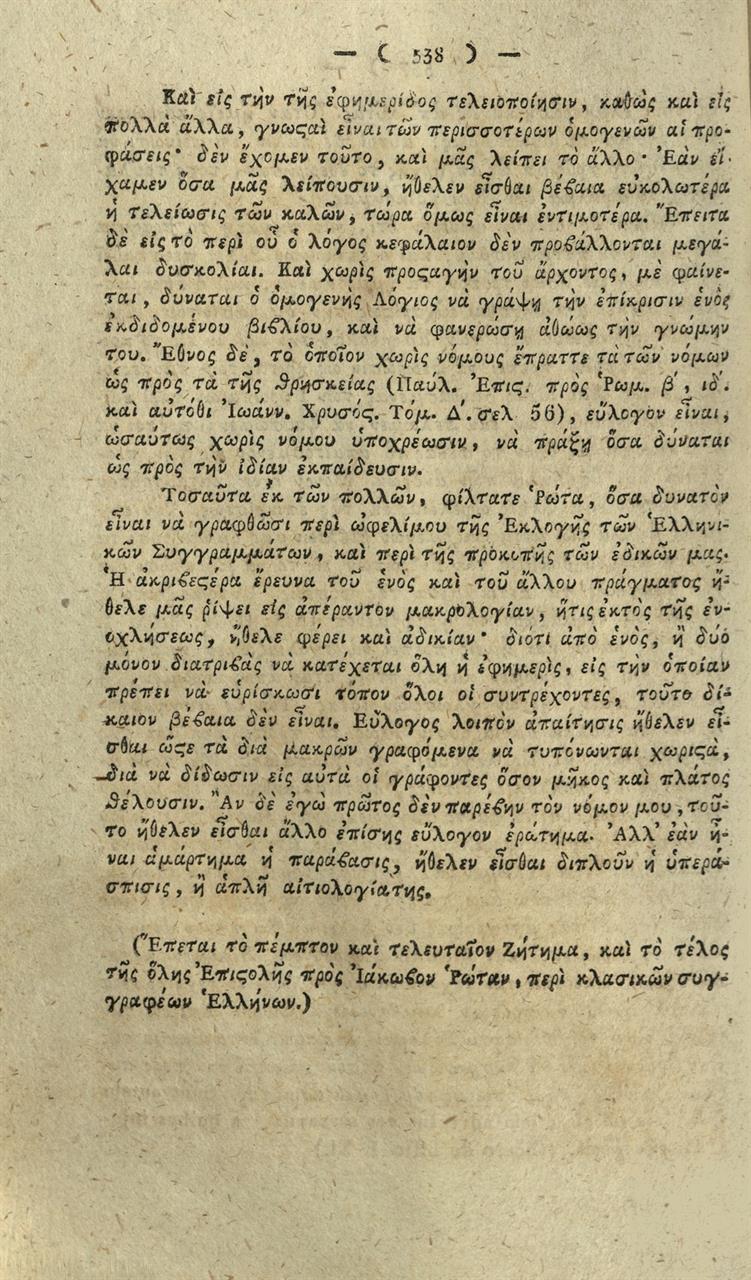 — ( 538 ) —
Καὶ εἰς τὴν τῆς ἐφημερίδος τελειοποίησιν, καθὼς καὶ εἰς
πολλὰ ἄλλα, γνωςαὶ εἶναι τῶν περισσοτέρων ὁμογενῶν αἱ προ-
φάσεις· δὲν ἔχομεν τοῦτο, καὶ μᾶς λείπει τὸ ἄλλο· Ἐὰν εἴ-
χαμεν ὅσα μᾶς λείπουσιν, ἤθελεν εἶσθαι βέβαια εὐκολωτέρα
ἡ τελείωσις τῶν καλῶν, τώρα ὅμως εἶναι ἐντιμοτέρα. Ἔπειτα
δὲ εἰς τὸ περὶ οὗ ὁ λόγος κεφάλαιον δὲν προβάλλονται μεγά-
λαι δυσκολίαι. Καὶ χωρὶς προςαγὴν τοῦ ἄρχοντος, μὲ φαίνε-
ται, δύναται ὁ ὁμογενὴς Λόγιος νὰ γράψῃ τὴν ἐπίκρισιν ἑνὸς
ἐκδιδομένου βιβλίου, καὶ νὰ φανερώσῃ ἀθώως τὴν γνώμην
του. Ἔθνος δὲ, τὸ ὁποῖον χωρὶς νόμους ἔπραττε τὰ τῶν νόμων
ὡς πρὸς τὰ τῆς θρησκείας (Παύλ. Ἐπις. πρὸς Ῥωμ. β΄, ιδ΄.
καὶ αὐτόθι Ἰωάνν. Χρυσός. Τόμ. Δ΄. σελ 56), εὔλογον εἶναι,
ὡσαύτως χωρὶς νόμου ὑποχρέωσιν, νὰ πράξῃ ὅσα δύναται
ὡς πρὸς τὴν ἰδίαν ἐκπαίδευσιν.
Τοσαῦτα ἐκ τῶν πολλῶν, φίλτατε Ῥώτα, ὅσα δυνατὸν
εἶναι νὰ γραφθῶσι περὶ ὠφελίμου τῆς Ἐκλογῆς τῶν Ἑλληνι-
κῶν Συγγραμμάτων, καὶ περὶ τῆς προκοπῆς τῶν ἐδικῶν μας.
Ἡ ἀκριβεςέρα ἔρευνα τοῦ ἑνὸς καὶ τοῦ ἄλλου πράγματος ἤ-
θελε μᾶς ῥίψει εἰς ἀπέραντον μακρολογίαν, ἥτις ἐκτὸς τῆς ἐν-
οχλήσεως, ἤθελε φέρει καὶ ἀδικίαν· διότι ἀπὸ ἑνὸς, ἢ δύο
μόνον διατριβὰς νὰ κατέχεται ὅλη ἡ ἐφημερὶς, εἰς τὴν ὁποίαν
πρέπει νὰ εὑρίσκωσι τόπον ὅλοι οἱ συντρέχοντες, τοῦτο δί-
καιον βέβαια δὲν εἶναι. Εὔλογος λοιπὸν ἀπαίτησις ἤθελεν εἶ-
σθαι ὥςε τὰ διὰ μακρῶν γραφόμενα νὰ τυπόνωνται χωριςὰ,
διὰ νὰ δίδωσιν εἰς αὐτὰ οἱ γράφοντες ὅσον μῆκος καὶ πλάτος
θέλουσιν. Ἂν δὲ ἐγὼ πρῶτος δὲν παρέβην τὸν νόμον μου, τοῦ-
το ἤθελεν εἶσθαι ἄλλο ἐπίσης εὔλογον ἐρώτημα. Ἀλλ' ἐὰν ἦ-
ναι ἁμάρτημα ἡ παράβασις, ἤθελεν εἶσθαι διπλοῦν ἡ ὑπερά-
σπισις, ἢ ἁπλῆ αἰτιολογία της.
(Ἕπεται τὸ πέμπτον καὶ τελευταῖον Ζήτημα, καὶ τὸ τέλος
τῆς ὅλης Ἐπιςολῆς πρὸς Ἰάκωβον Ῥώταν, περὶ κλασικῶν συγ-
γραφέων Ἑλλήνων.)